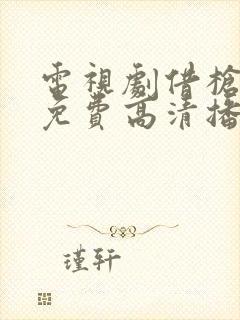 電視劇借槍
免費高清播
瑾轩